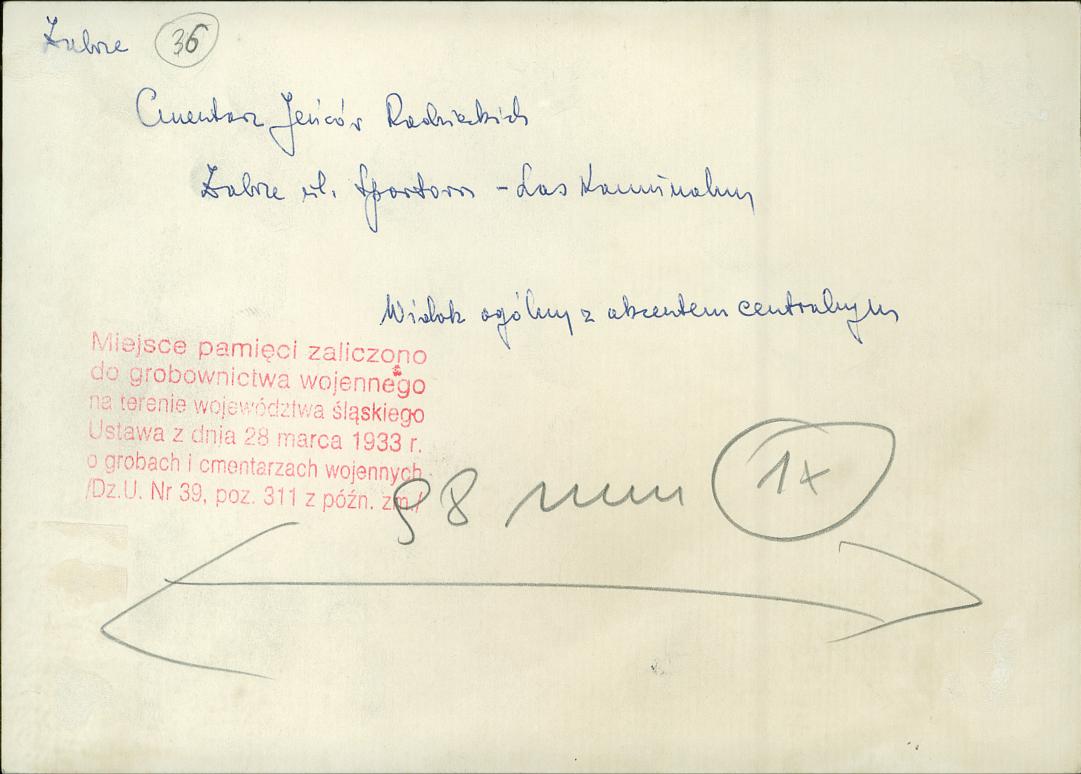 Zabrze 36
Cmentarz Jeńców Radzieckich
Zabrze ul. Sportowa - Las Komunalny
Widok ogólny z akcentem centralnym
Miejsce pamięci zaliczono
do grobownictwa wojennego
na terenie województwa śląskiego
Ustawa z dnia 28 marca 1933 r.
o grobach i cmentarzach wojennych
/Dz.U. Nr 39, poz. 311 z późn. zm./
98 mm 1x